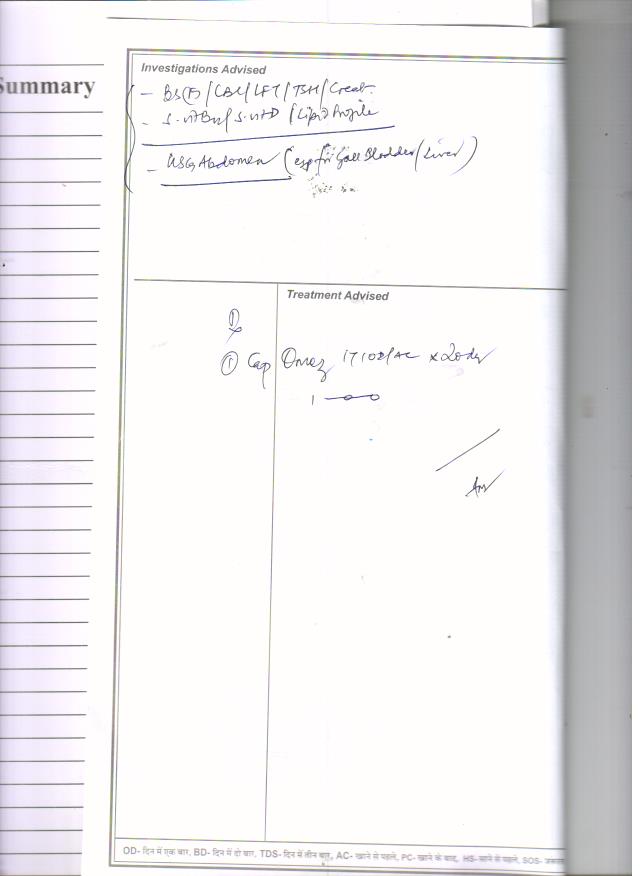 Summary
Investigations Advised
- BS(F) / CBC / LFT / TSH / Creat.
- S. Vit B12 / S. Vit D / Lipid Profile
- USG Abdomen (esp for Gall Bladder / Liver)
Treatment Advised
① Cap Omez 1T 1OD/AC x 20 dy
1-0-0
OD- दिन में एक बार, BD- दिन में दो बार, TDS- दिन में तीन बार, AC- खाने से पहले, PC- खाने के बाद, HS- सोने से पहले, SOS-